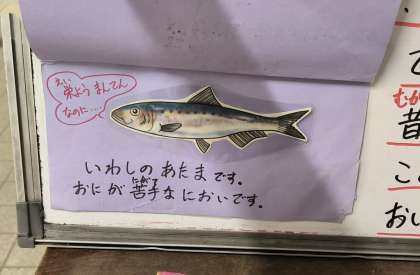 栄よう まんてん
なのに...
いわしの あたま です。
おにが 苦手な においです。
にがて
むか
昔
こ
おい